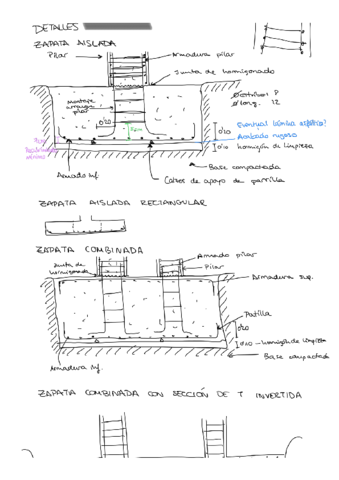 DETALLES
ZAPATA AISLADA
Pilar
Armadura pilar
Junta de hormigonado
Montaje
arranque
pilar
Øestribos 8
Ølong. 12
0'20
0'20
Eventual lámina
Acabado rugoso
0'10 hormigón de limpieza
Base compactada
Armado inf.
Calzos de apoyo de parrilla
ZAPATA AISLADA RECTANGULAR
ZAPATA COMBINADA
Junta de
hormigonado
Armado pilar
Pilar
Armadura sup.
Patilla
0'20
0'10 hormigón de limpieza
Base compactada
Armadura inf.
ZAPATA COMBINADA CON SECCIÓN DE T INVERTIDA